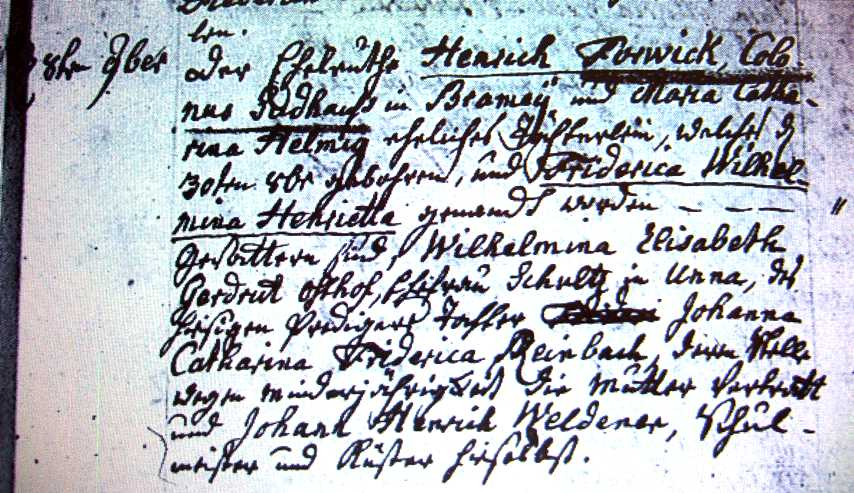 ben.
8ten 9ber der Eheleuthe Henrich Forwick, Colo-
nus Südhaus in Bramey und Maria Catha-
rina Helmig eheliches Töchterlein, welches d
30ten 8br gebohren, und Friderica Wilhel-
mina Henrietta genandt worden — — — — "
Gevattern sind, Wilhelmina Elisabeth
Gerdrut Osthof, Ehefrau Schultz in Unna, des
hiesigen Predigers Tochter Johanna
Catharina Friderica Reinbach, deren Stelle
wegen minderjährigkeit die Mutter vertratt
und Johann Henrich Weldener, Schul-
meister und Küster hieselbst.